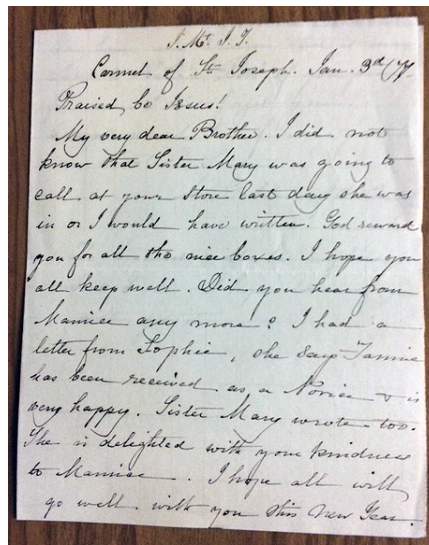 J. M. J. T.
Carmel of St Joseph. Jan. 3rd/
Praised be Jesus!
My very dear Brother. I did not
know that Sister Mary was going to
call at your Store last day she was
in or I would have written. God reward
you for all the nice boxes. I hope you
all keep well. Did you hear from
Mamie any more? I had a
letter from Sophie, she says
has been received as a Novice & is
very happy. Sister Mary wrote too.
She is delighted with your kindness
to Mamie. I hope all will
go well with you this New Year.